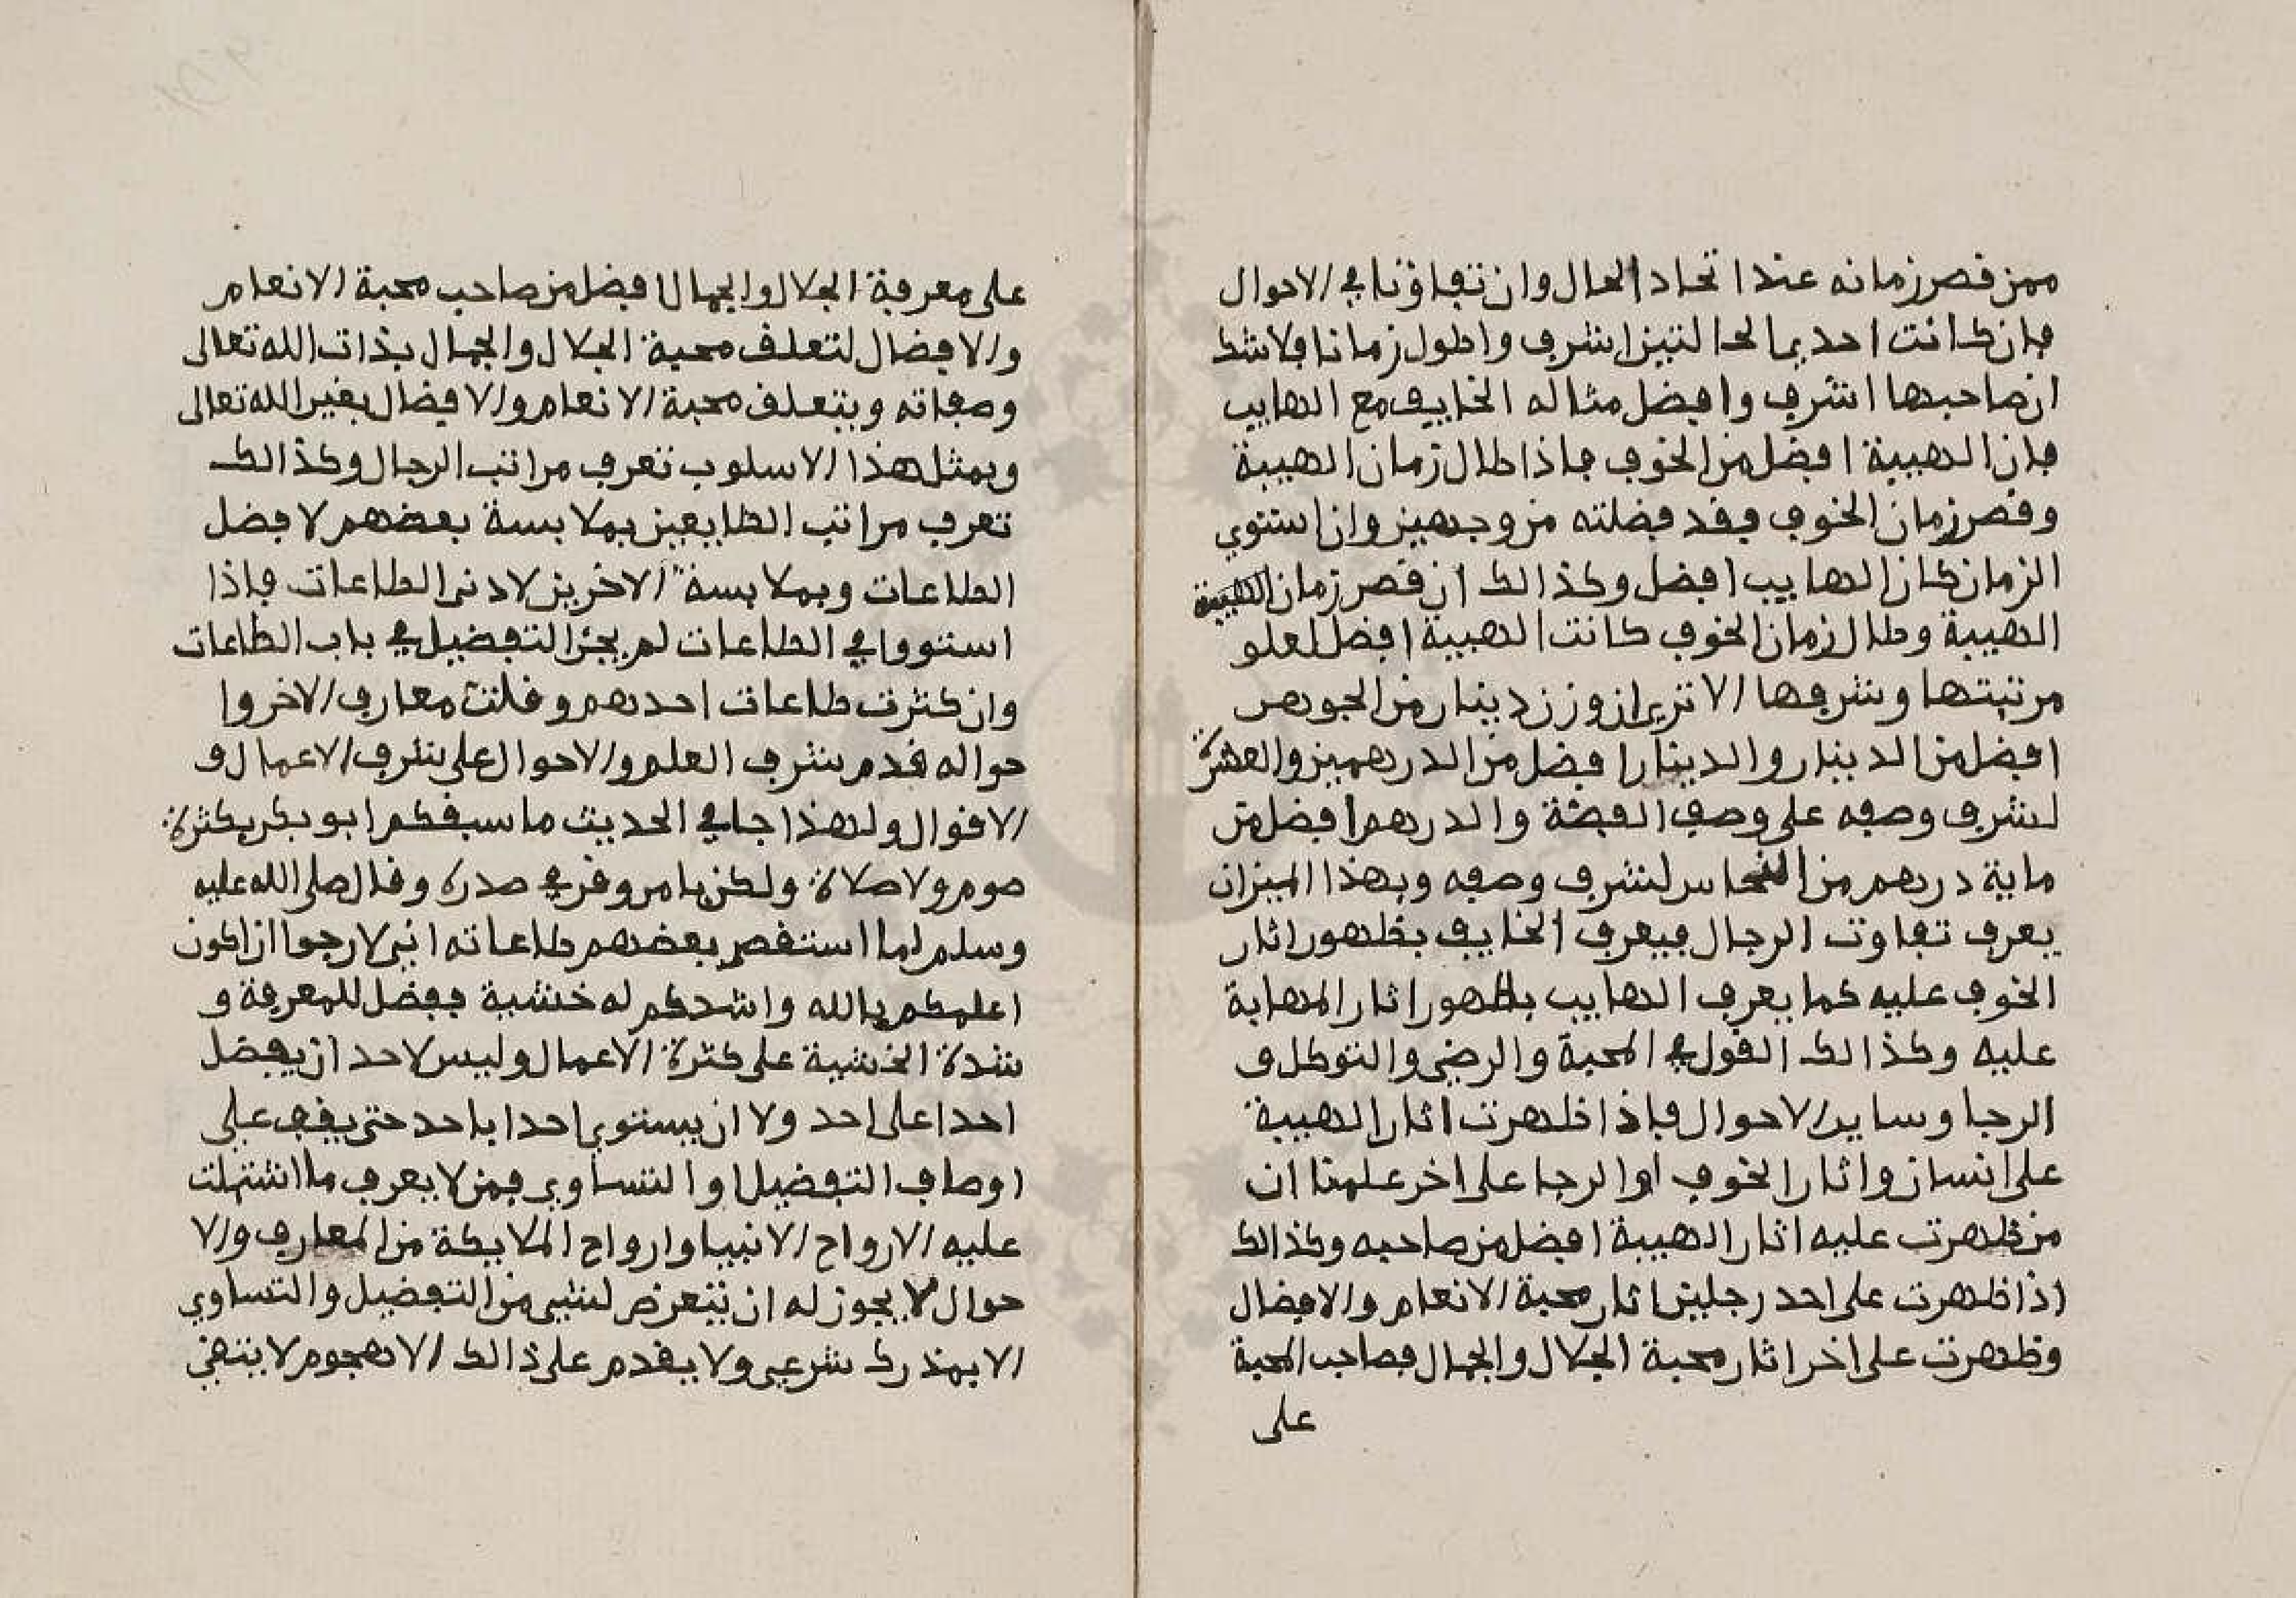 ممن قصر زمانه عند اتحاد الحال وان تفاوتا في الاحوال
فان كانت احديهما لحالتين اشرف واطول زمانا فلا شك
ان صاحبها اشرف وافضل مثاله الخايف مع الهايب
فان الهيبة افضل من الخوف فاذا طال زمان الهيبة
وقصر زمان الخوف فقد فضلته من وجهين وان استوي
الزمان كان الهايب افضل وكذالك ان قصر زمان
الهيبة وطال زمان الخوف كانت الهيبة افضل لعلو
مرتبتها وشرفها الا تري ان وزن دينار من الجوهر
افضل من الدينار والدينار افضل من الدرهمين والعشرة
لشرف وصفه على وصف الفضة والدرهم افضل من
ماية درهم من النحاس لشرف وصفه وبهذا الميزان
يعرف تفاوت الرجال فيعرف الخايف بظهور اثار
الخوف عليه كما يعرف الهايب بظهور اثار المهابة
عليه وكذالك القول في المحبة والرضى والتوكل و
الرجا وساير الاحوال فاذا ظهرت اثار الهيبة
على انسان واثار الخوف او الرجا على اخر علمنا ان
من ظهرت عليه اثار الهيبة افضل من صاحبه وكذالك
اذا ظهرت على احد رجلين اثار محبة الانعام والافضال
وظهرت على اخر اثار محبة الجلال والجمال فصاحب المحبة
على
على معرفة الجلال والجمال افضل من صاحب محبة الانعام
والافضال لتعلق محبة الجلال والجمال بذات الله تعالى
وصفاته ويتعلق محبة الانعام والافضال بغير الله تعالى
وبمثل هذا الاسلوب تعرف مراتب الرجال وكذالك
تعرف مراتب الطايعين بملابسة بعضهم لافضل
الطاعات وبملابسة الاخرين لادنى الطاعات فاذا
استووا في الطاعات لم يجز التفضيل في باب الطاعات
وان كثرت طاعات احدهم وقلت معارف الاخر وا
حواله قدم شرف العلم والاحوال على شرف الاعمال و
الاقوال ولهذا جا في الحديث ما سبقكم ابو بكر بكثرة
صوم ولا صلاة ولكن بامر وقر في صدره وقال صلى الله عليه
وسلم لما استقصر بعضهم طاعاته اني لارجوا ان اكون
اعلمكم بالله واشدكم له خشية ففضل للمعرفة و
شدة الخشية على كثرة الاعمال وليس لاحد ان يفضل
احدا على احد ولا ان يستوي احدا باحد حتى يقف على
اوصاف التفضيل او التساوي فمن لا يعرف ما اشتملت
عليه الارواح الانبيا وارواح الملايكة من المعارف والا
حوال لا يجوز له ان يتعرض لشيى من التفضيل والتساوي
الا بمدرك شرعي ولا يقدم على ذالك الا هجوم لا يتقي